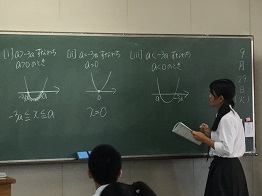 (i) a>-3a すなわち
a>0のとき
-3a≦x≦a
(ii) a=-3a すなわち
a=0
x=0
(iii) a<-3a すなわち
a<0のとき
9
月
29
日
(火)